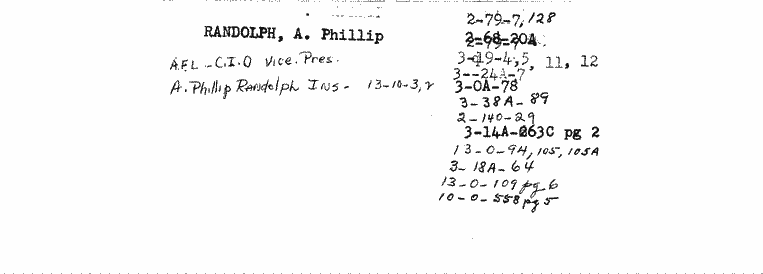 2-79-7, 128
RANDOLPH, A. Phillip
2-68-20A
AFL-C.I.O Vice. Pres.
3-19-4,5, 11, 12
3--24A-7
A. Phillip Randolph Ins- 13-10-3,2
3-0A-78
3-38A-89
2-140-29
3-14A-263C pg 2
13-0-94, 105, 105A
3-18A-64
13-0-109 pg 6
10-0-558 pg 5